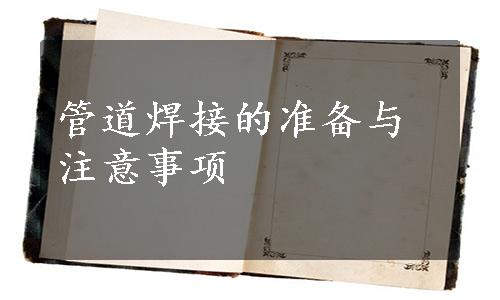 管道焊接的准备与
注意事项